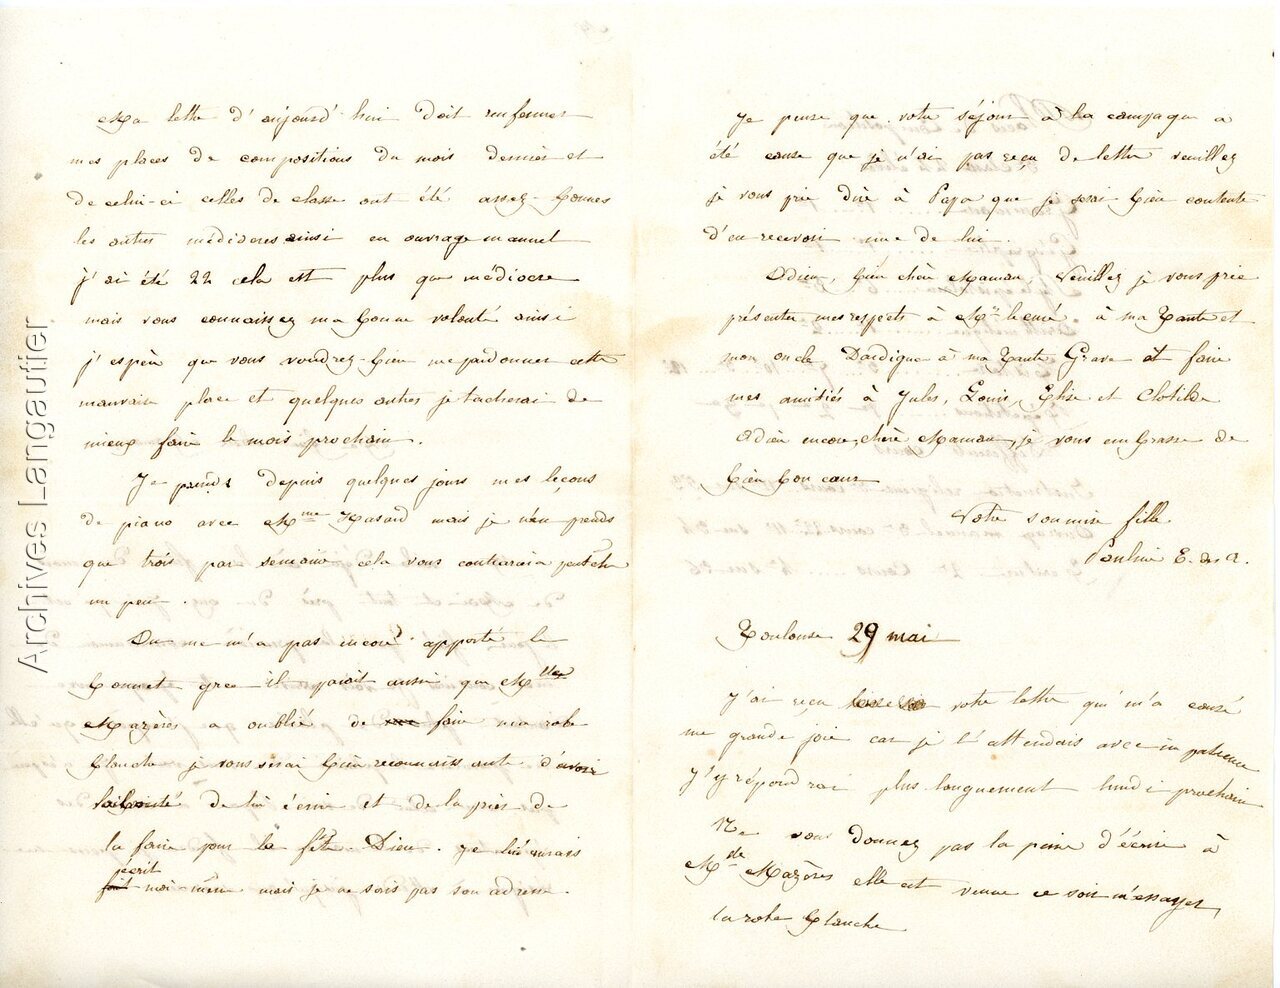 Ma lettre d'aujourd'hui doit renfermer
mes places de compositions du mois dernier et
de celui-ci celles de classe ont été assez-bonnes
les autres médiocres ainsi en ouvrage manuel
j'ai été 22 cela est plus que médiocre
mais vous connaissez ma bonne volonté ainsi
j'espère que vous voudrez-bien me pardonner cette
mauvaise place et quelques autres je tacherai de
mieux faire le mois prochain.
Je prends depuis quelques jours mes leçons
de piano avec Mme Hasard mais je n'en prends
que trois par semaine cela vous contrariera peut-être
un peu.
On ne m'a pas encore apporté le
bonnet grec il parait aussi que Mlle
Mazères a oublié de faire ma robe
blanche je vous serai bien reconnaissante d'avoir
la bonté de lui écrire et de la prier de
la faire pour la fête-Dieu. Je lui aurais
écrit
fait moi-même mais je ne sais pas son adresse.
Je pense que votre séjour à la campagne a
été cause que je n'ai pas reçu de lettre veuillez
je vous prie dire à Papa que je serai bien contente
d'en recevoir une de lui.
Adieu, bien chère Maman, Veuillez je vous prie
présenter mes respects à à ma Tante et
mon oncle Dardigna à ma Tante Grave et faire
mes amitiés à Jules, Louis, Elise et Clotilde
Adieu encore, chère Maman, je vous embrasse de
bien bon cœur
Votre soumise fille
Pauline E. des A.
Toulouse 29 mai
J'ai reçu votre lettre qui m'a causé
une grande joie car je l'attendais avec impatience
J'y répondrai plus longuement lundi prochain
Ne vous donnez pas la peine d'écrire à
Mde Mazères elle est venue ce soir m'essayer
la robe blanche
Archives Langautier